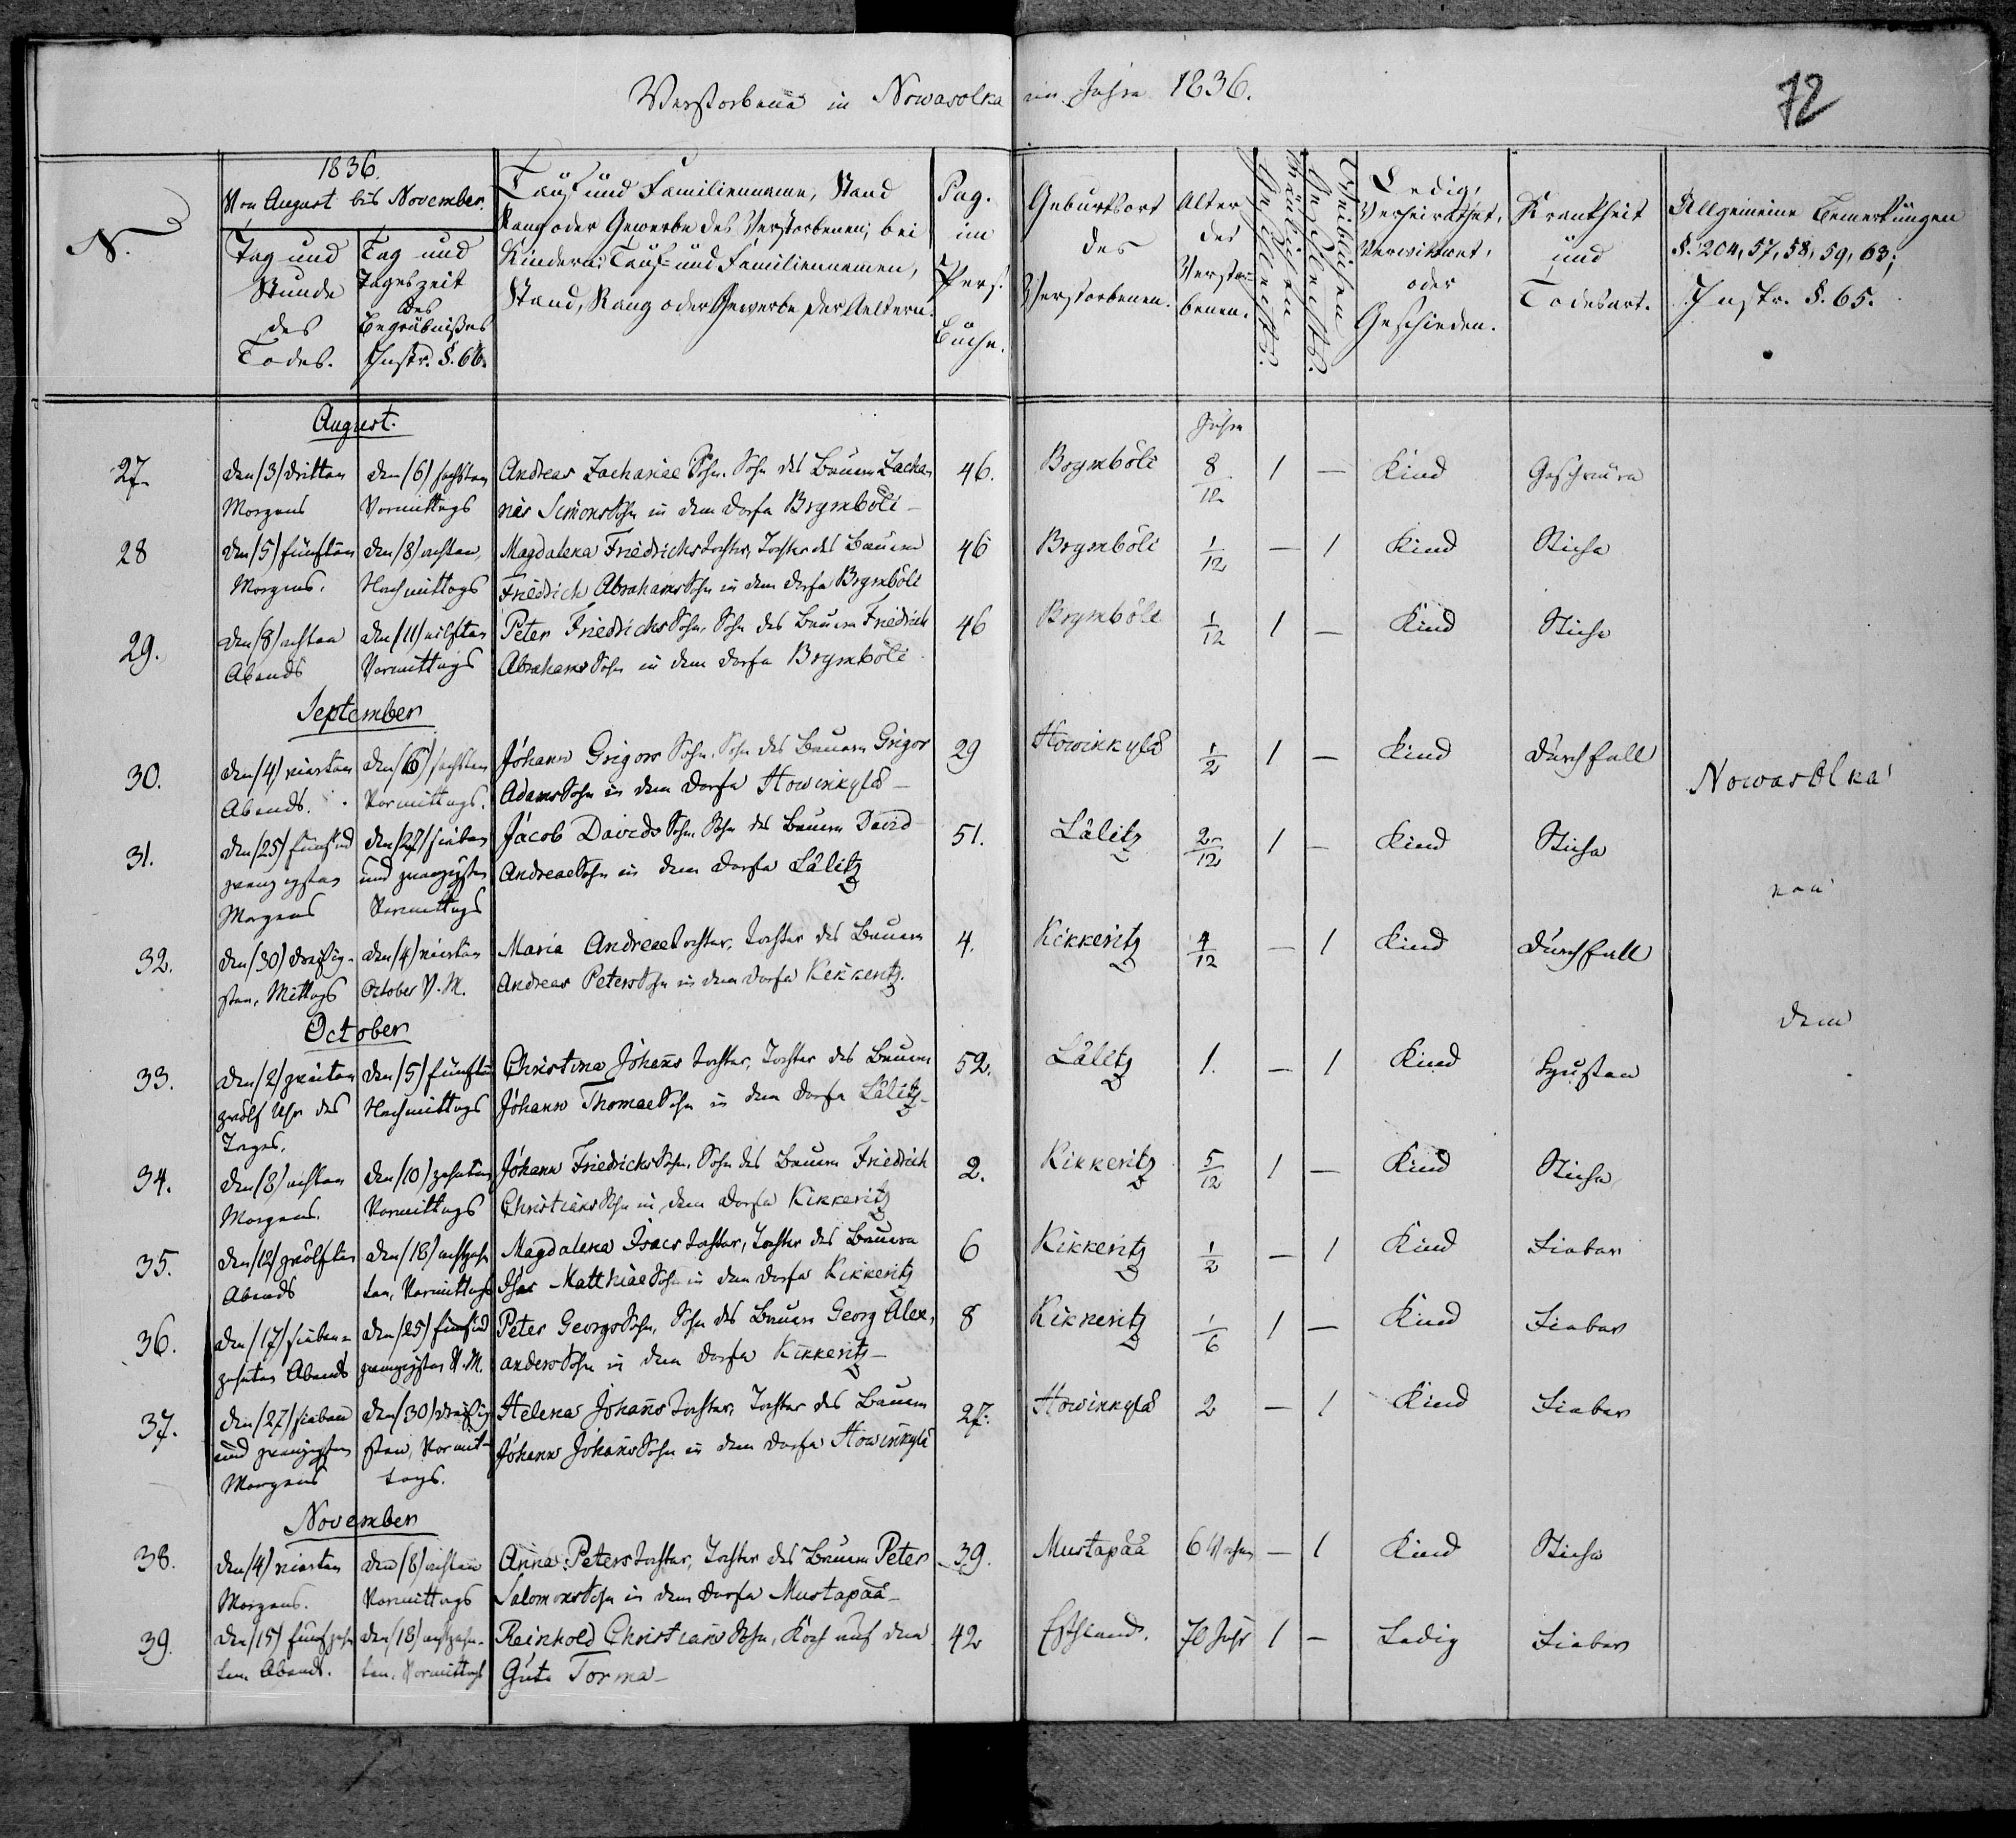 Verstorbene in Nowasolka im Jahre 1836.
72
N.
1836.
Von August bis November.
Tag und Stunde des Todes.
Tag und Tageszeit des Begräbnißes Instr. §. 66.
Tauf und Familienname, Stand
Rang oder Gewerbe des Verstorbenen; bei
Kindern: Tauf- und Familiennamen,
Stand, Rang oder Gewerbe der Aeltern.
Pag. im Pers. Buche.
Geburtsort des Verstorbenen.
Alter des Verstorbenen.
Männlichen Geschlechts.
Weiblichen Geschlechts.
Ledig, Verheirathet, Verwittwet, oder Geschieden.
Krankheit und Todesart.
Allgemeine Bemerkungen
§. 204, 57, 58, 59, 63;
Instr. §. 65.
August.
Jahre
27. den (3) dritten den (6) sechsten Andreas Zachariae Sohn. Sohn des Bauern Zacha- 46. Bogmböli 8/12 1 — Kind
Morgens Vormittags rias Simons Sohn in dem Dorfe Bogmböli —
28 den (5) fünften den (8) achten, Magdalena Friedrichs Tochter, Tochter des Bauern 46 Bogmböli 1/12 — 1 Kind
Morgens. Nachmittags Friedrich Abrahams Sohn in dem Dorfe Bogmböli
29. den (8) achten den (11) eilften Peter Friedrichs Sohn, Sohn des Bauern Friedrich 46 Bogmböli 1/12 1 — Kind
Abends Vormittags Abrahams Sohn in dem Dorfe Bogmböli
September
30. den (4) vierten den (6) sechsten Johann Grigors Sohn, Sohn des Bauern Grigor 29 Howinkylä 1/2 1 — Kind Durchfall
Abends. Vormittags. Adams Sohn in dem Dorfe Howinkylä —
Nowasolka
31. den (25) fünf und den (27) sieben Jacob Davids Sohn Sohn des Bauern David 51. Lälitz 2/12 1 — Kind
zwanzigsten und zwanzigsten Andreae Sohn in dem Dorfe Lälitz
Morgens Vormittags
32. den (30) dreißig- den (4) vierten Maria Andreae Tochter, Tochter des Bauern 4. Kikkeritz 4/12 — 1 Kind Durchfall
sten, Mittags October V. M. Andreas Peters Sohn in dem Dorfe Kikkeritz.
October
33. den (2) zweiten den (5) fünften Christina Johans Tochter, Tochter des Bauern 52. Lälitz 1. — 1 Kind
zwölf Uhr des Nachmittags Johann Thomae Sohn in dem Dorfe Lälitz —
Tages.
34. den (8) achten den (10) zehnten Johann Friedrichs Sohn, Sohn des Bauern Friedrich 2. Kikkeritz 5/12 1 — Kind
Morgens. Vormittags Christians Sohn in dem Dorfe Kikkeritz
35. den (12) zwölften den (18) achtzehn Magdalena Isacs Tochter, Tochter des Bauern 6 Kikkeritz 1/2 — 1 Kind Fieber
Abends ten, Vormittags Isac Matthiae Sohn in dem Dorfe Kikkeritz
36. den (17) sieben- den (25) fünf und Peter Georgs Sohn, Sohn des Bauern Georg Alex- 8 Kikkeritz 1/6 1 — Kind Fieber
zehnten Abends zwanzigsten V. M. anders Sohn in dem Dorfe Kikkeritz —
37. den (27) sieben den (30) dreißig Helena Johans Tochter, Tochter des Bauern 27. Howinkylä 2 — 1 Kind Fieber
und zwanzigsten sten, Vormit- Johann Johans Sohn in dem Dorfe Howinkylä
Morgens tags.
November
38. den (4) vierten den (8) achten Anna Peters Tochter, Tochter des Bauern Peter 39. Mustapää 6 Wochen — 1 Kind
Morgens. Vormittags Salomons Sohn in dem Dorfe Mustapää —
39. den (15) fünfzehn den (18) achtzehn- Reinhold Christians Sohn, Koch auf dem 42 Esthland. 70 Jahr 1 — Ledig Fieber
ten Abends. ten, Vormittags Gute Torma —